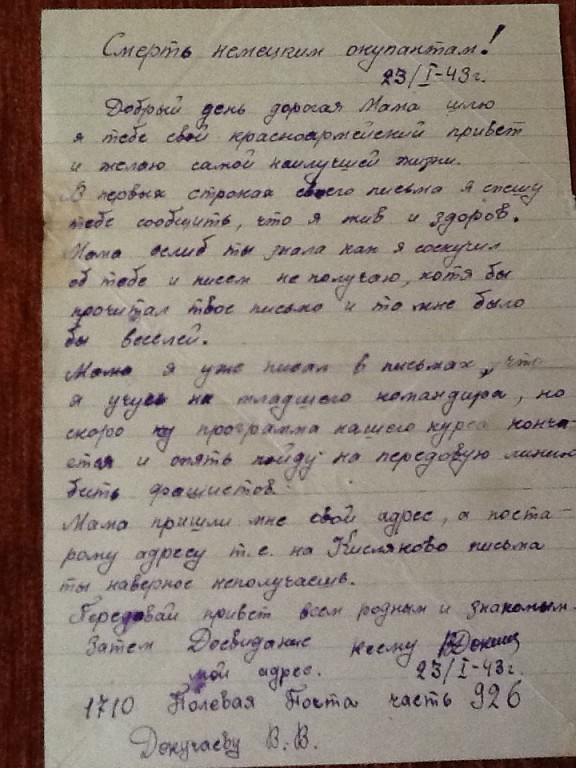 Смерть немецким окупантам!
23/I-43г.
Добрый день дорогая Мама шлю
я тебе свой красноармейский привет
и желаю самой наилучшей жизни.
В первых строках своего письма я спешу
тебе сообщить, что я жив и здоров.
Мама еслиб ты знала как я соскучил
об тебе и писем не получаю, хотя бы
прочитал твое письмо и то мне было
бы веселей.
Мама я уже писал в письмах, что
я учусь на младшего командира, но
скоро программа нашего курса конча-
ется и опять пойду на передовую линию
бить фашистов.
Мама пришли мне свой адрес, а поста-
рому адресу т.е. на Кисляково письма
ты наверное неполучаешь.
Передовай привет всем родным и знакомым.
Затем Досвидание
мой адрес. 23/I-43г.
1710 Полевая Почта часть 926
Докучаеву В.В.